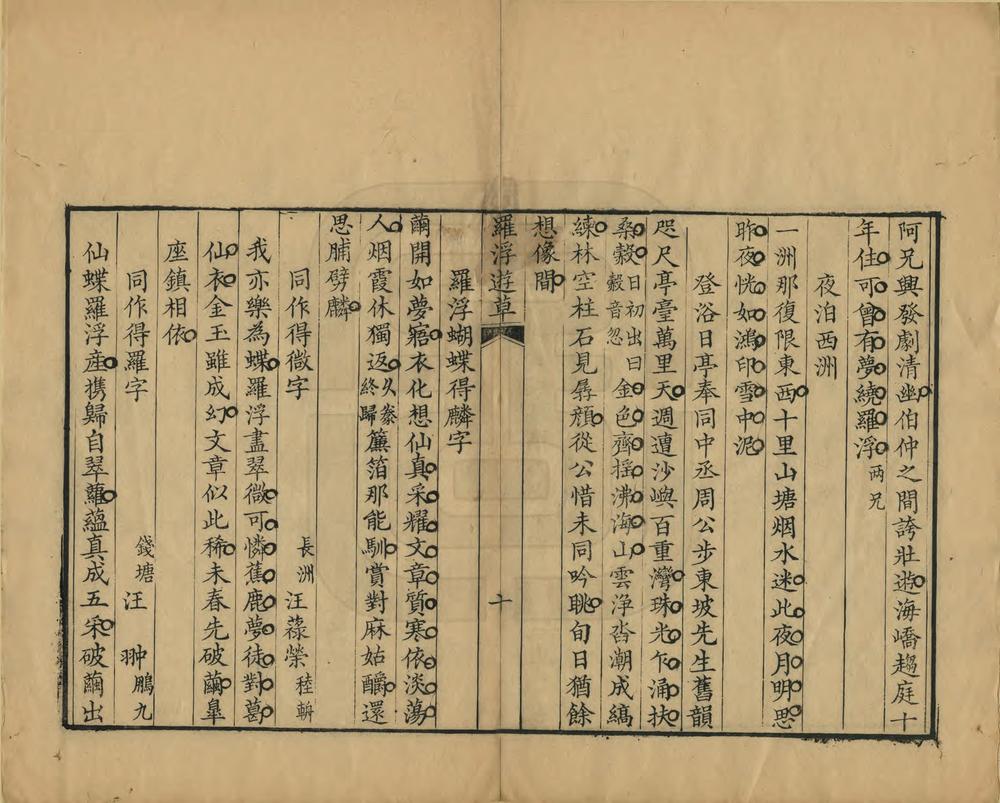 阿兄興發劇清幽伯仲之間誇壯遊海嶠趨庭十
年住可曾有夢繞羅浮兩兄
夜泊西洲
一洲那復限東西十里山塘烟水迷此夜月明思
昨夜恍如鴻印雪中泥
登浴日亭奉同中丞周公步東坡先生舊韻
咫尺亭臺萬里天週遭沙嶼百重灣珠光乍涌扶
桑縠日初出曰縠音忽金色齊搖沸海山雲淨沓潮成縞
練林空柱石見孱顏從公惜未同吟眺旬日猶餘
想像間
羅浮遊草 十
羅浮蝴蝶得麟字
繭開如夢寤衣化想仙真采耀文章質寒依淡蕩
人烟霞休獨返久豢終歸簾箔那能馴賞對麻姑釂還
思脯劈麟
同作得微字 長洲汪蓀榮稑輧
我亦樂為蝶羅浮盡翠微可憐蕉鹿夢徒對葛
仙衣金玉雖成幻文章似此稀未春先破繭皐
座鎮相依
同作得羅字 錢塘汪翀鵬九
仙蝶羅浮產攜歸自翠蘿蘊真成五采破繭出